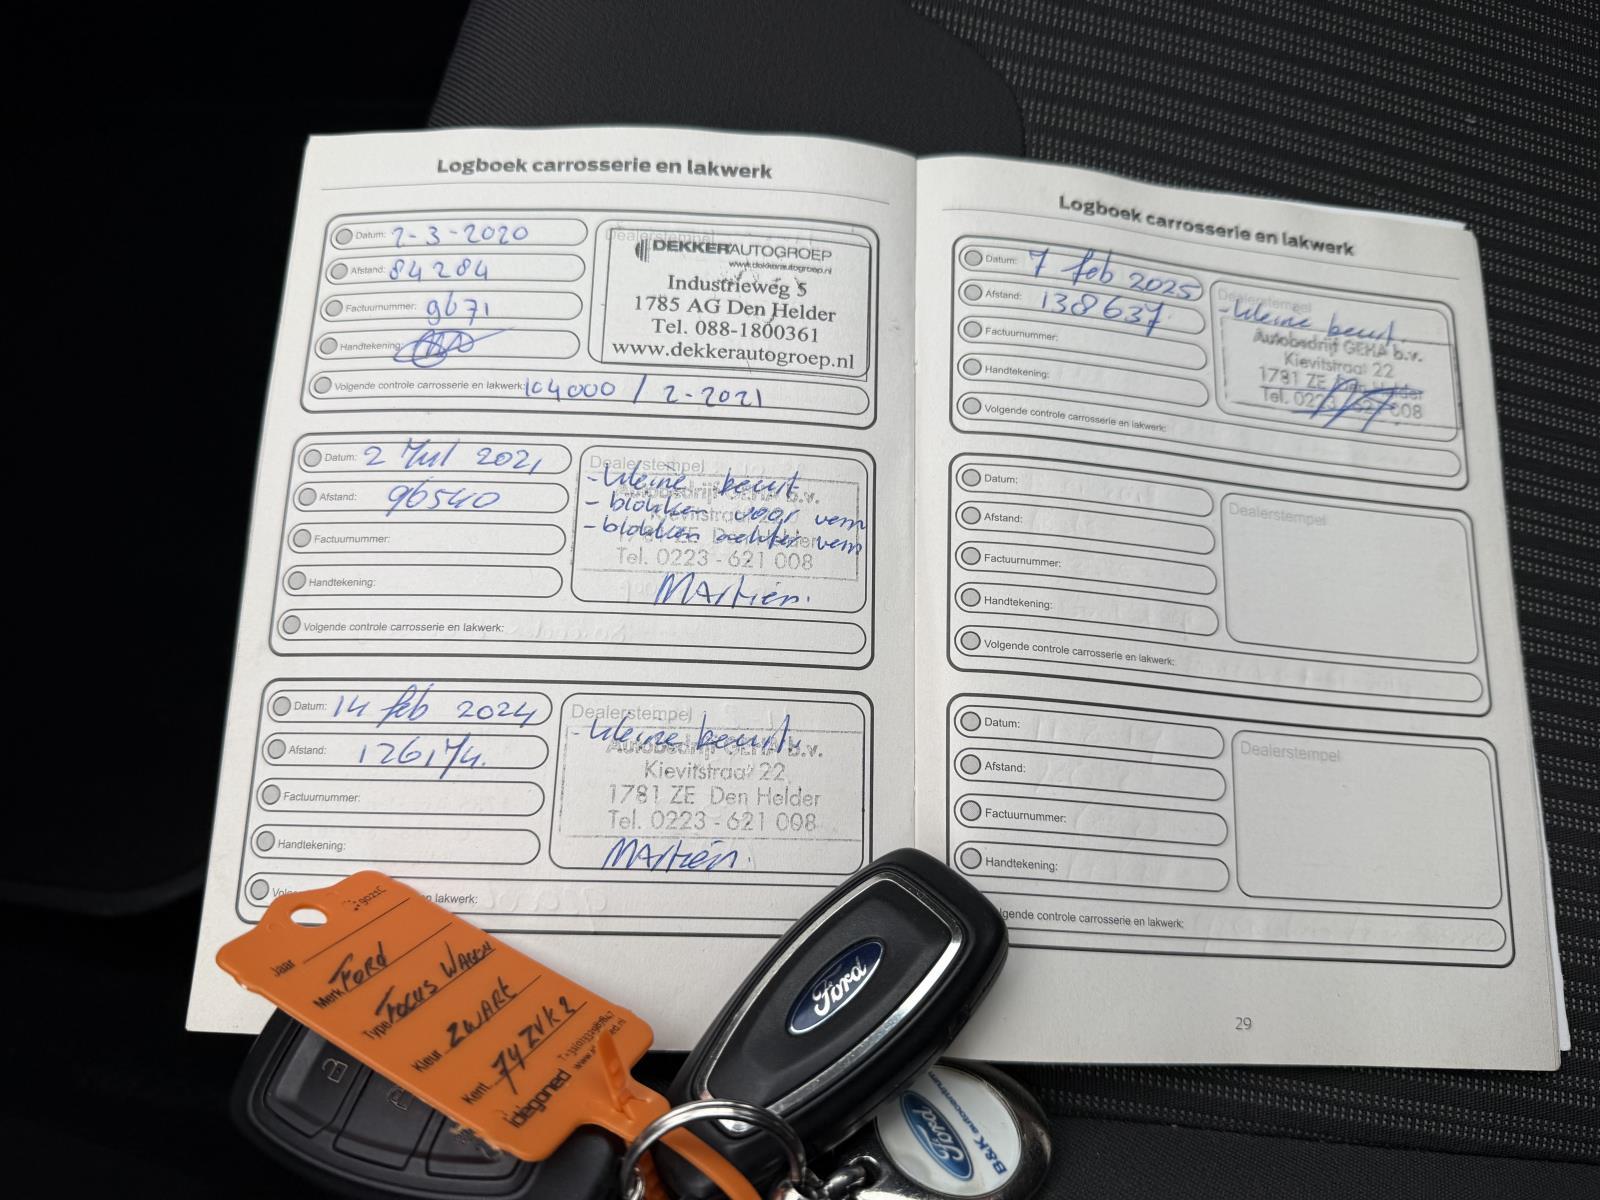 Logboek carrosserie en lakwerk
Datum: 2-3-2020
Afstand: 84284
Factuurnummer: 9671
Handtekening:
Volgende controle carrosserie en lakwerk: 104000 / 2-2021
Dealerstempel
DEKKERAUTOGROEP
www.dekkerautogroep.nl
Industrieweg 5
1785 AG Den Helder
Tel. 088-1800361
www.dekkerautogroep.nl
Datum: 2 Jul 2021
Afstand: 96540
Factuurnummer:
Handtekening:
Volgende controle carrosserie en lakwerk:
Dealerstempel
- kleine beurt
- blokken voor vern
- blokken achter vern
Autobedrijf GEHA b.v.
Kievitstraat 22
1781 ZE Den Helder
Tel. 0223 - 621 008
Martien.
Datum: 14 feb 2024
Afstand: 126174.
Factuurnummer:
Handtekening:
lakwerk:
Dealerstempel
- kleine beurt
Autobedrijf GEHA b.v.
Kievitstraat 22
1781 ZE Den Helder
Tel. 0223 - 621 008
Martien.
Logboek carrosserie en lakwerk
Datum: 7 feb 2025
Afstand: 138637
Factuurnummer:
Handtekening:
Volgende controle carrosserie en lakwerk:
Dealerstempel
- kleine beurt.
Autobedrijf GEHA b.v.
Kievitstraat 22
1781 ZE Den Helder
Tel. 0223 - 621 008
Datum:
Afstand:
Factuurnummer:
Handtekening:
Volgende controle carrosserie en lakwerk:
Dealerstempel
Datum:
Afstand:
Factuurnummer:
Handtekening:
lgende controle carrosserie en lakwerk:
Dealerstempel
29
Jaar
Merk Ford
Type Focus Wagon
Kleur Zwart
Kent. 74ZVK2
Ford
Ford
B&K autocentrum